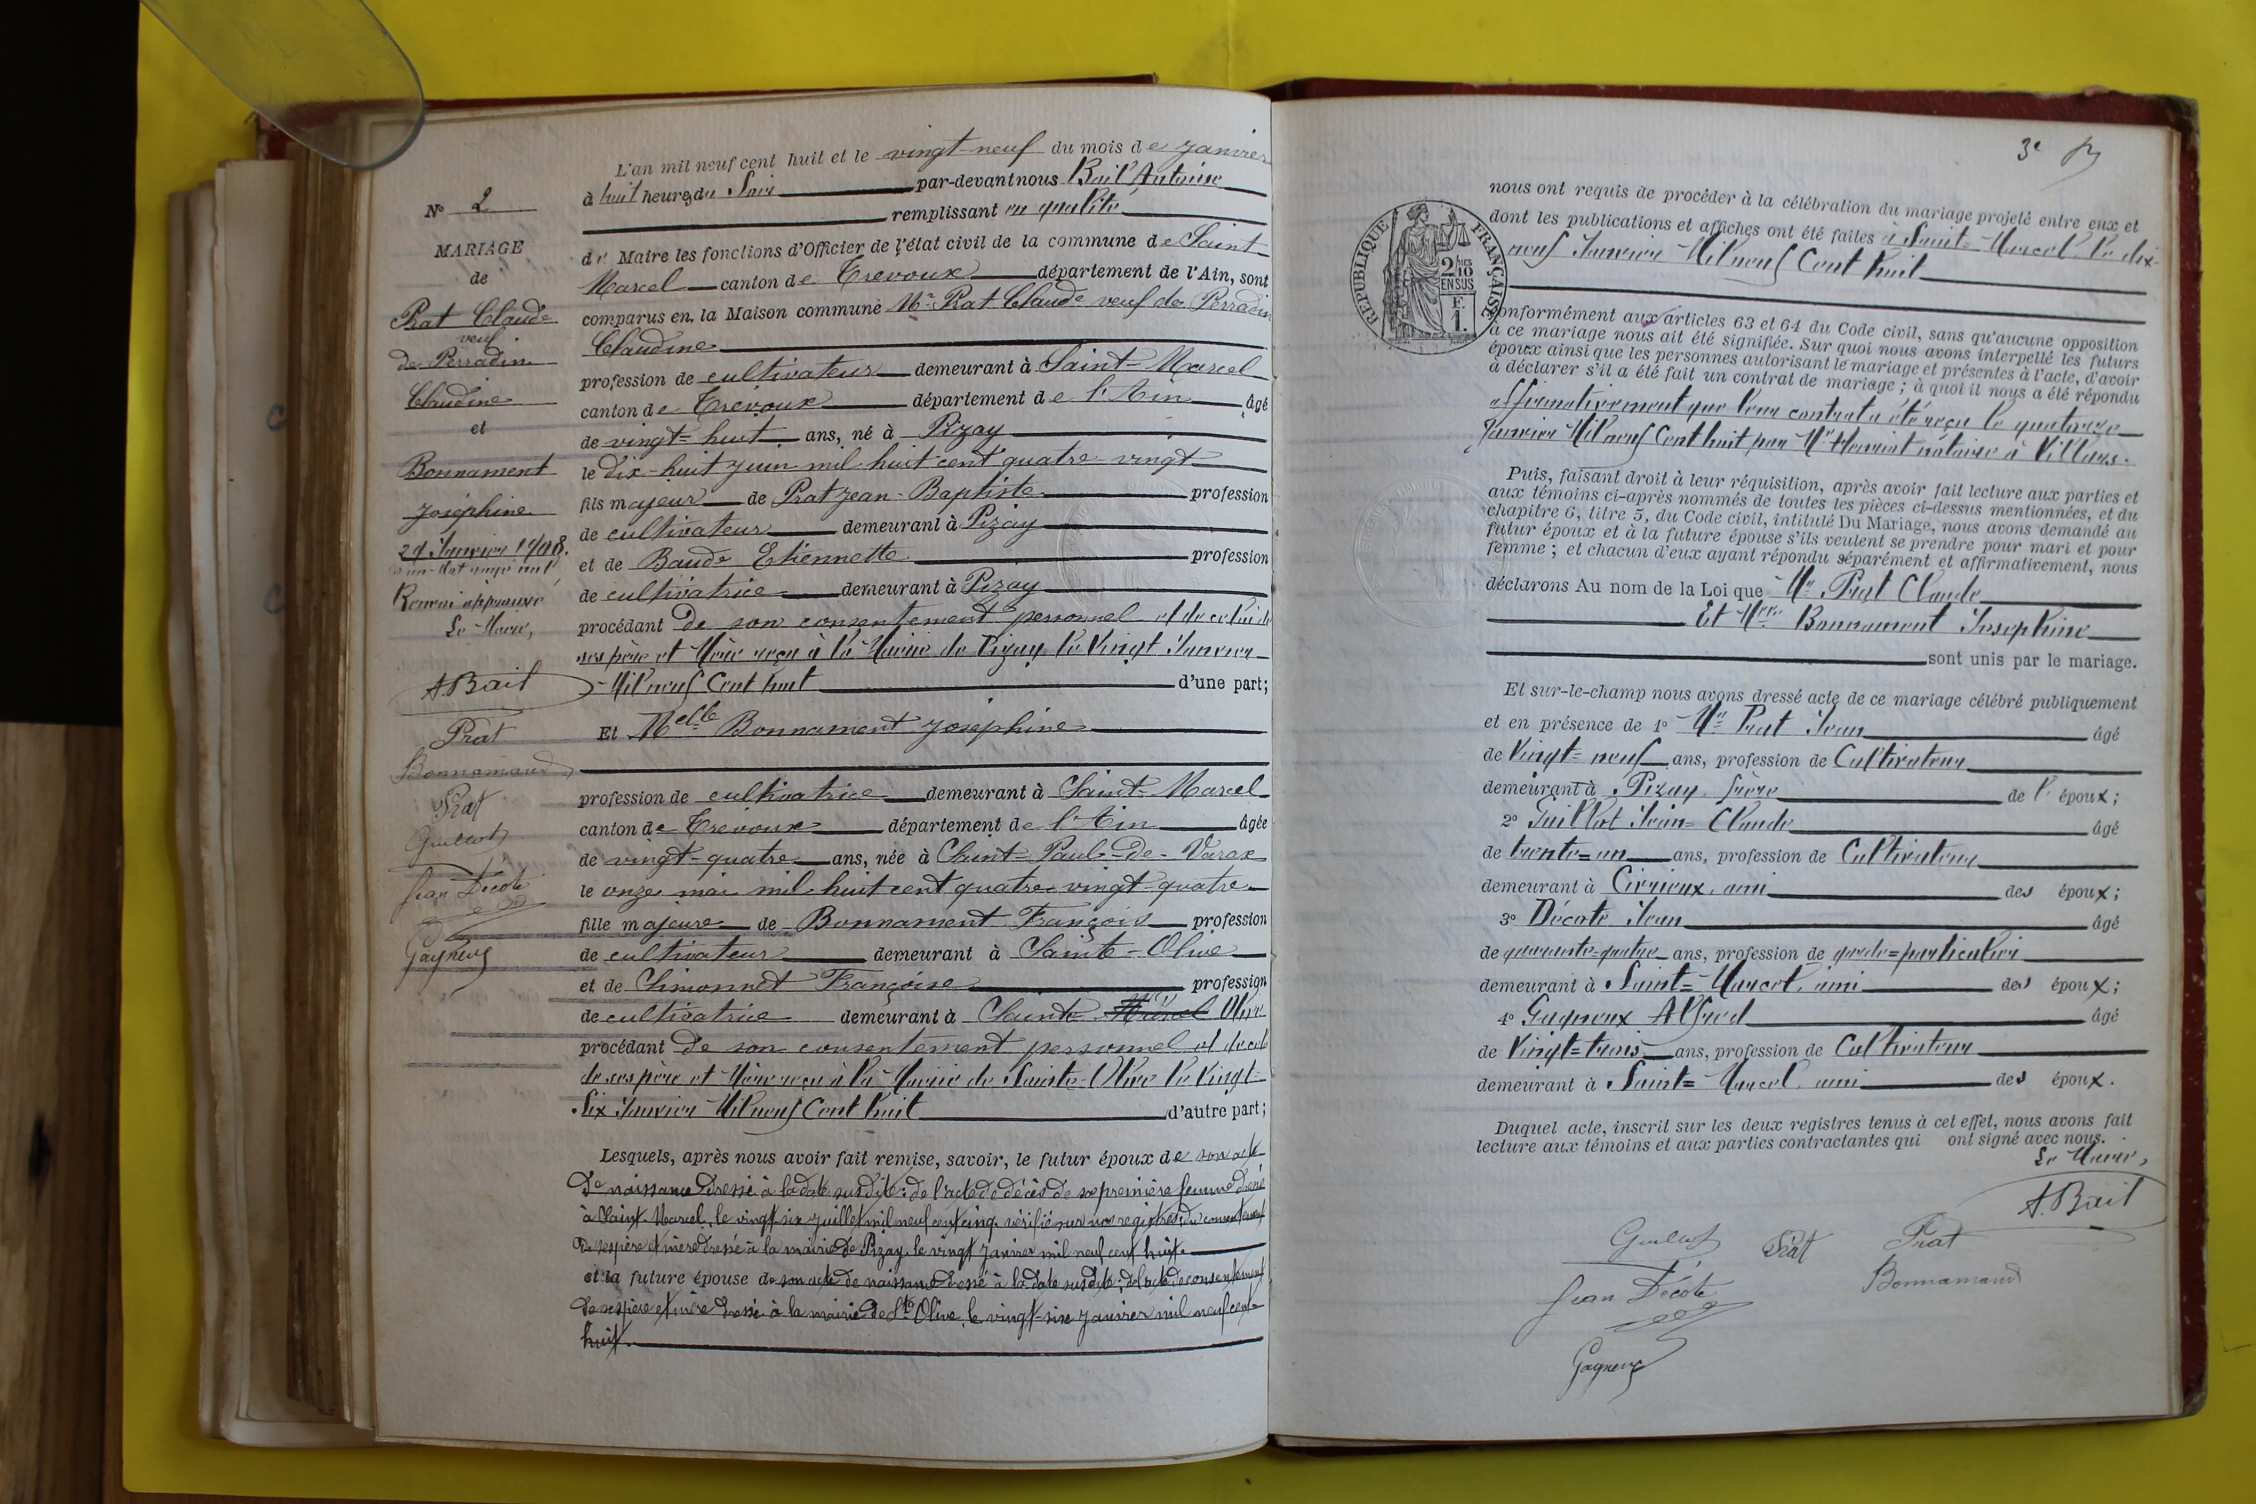 N° 2
MARIAGE
de
Prat Claude
veuf
de Perradin
Claudine
et
Bonnament
Joséphine
29 Janvier 1908.
Renvoi approuvé
Le Maire,
A. Bait
Prat
Bonnamand
Prat
Guillot
Jean Décote
Gagneux
L'an mil neuf cent huit et le vingt-neuf du mois de Janvier
à huit heures du Soir par-devant nous Bait Antoine
remplissant en qualité
de Maire les fonctions d'Officier de l'état civil de la commune de Saint
Marcel canton de Trevoux département de l'Ain, sont
comparus en la Maison commune Mr Prat Claude veuf de Perradin
Claudine
profession de cultivateur demeurant à Saint-Marcel
canton de Trevoux département de l'Ain âgé
de vingt-huit ans, né à Pizay
le dix-huit juin mil huit cent quatre vingt
fils majeur de Prat Jean-Baptiste profession
de cultivateur demeurant à Pizay
et de Baude Etiennette profession
de cultivatrice demeurant à Pizay
procédant de son consentement personnel et de celui de
ses père et Mère reçu à la Mairie de Pizay le Vingt Janvier
Mil neuf Cent huit d'une part;
Et Melle Bonnament Joséphine
profession de cultivatrice demeurant à Saint-Marcel
canton de Trevoux département de l'Ain âgée
de vingt-quatre ans, née à Saint-Paul-de-Varax
le onze mai mil huit cent quatre-vingt-quatre
fille majeure de Bonnament François profession
de cultivateur demeurant à Sainte-Olive
et de Simonnet Françoise profession
de cultivatrice demeurant à Sainte Olive
procédant de son consentement personnel et de celui
de ses père et Mère reçu à la Mairie de Sainte-Olive le Vingt-
Six Janvier Mil neuf Cent huit d'autre part;
Lesquels, après nous avoir fait remise, savoir, le futur époux de son acte
de naissance dressé à la date susdite; de l'acte de décès de sa première femme dressé
à Saint-Marcel, le vingt-six juillet mil neuf cent cinq vérifié sur nos registres; du consentement
de ses père et mère dressé à la mairie de Pizay le vingt janvier mil neuf cent huit.
et la future épouse de son acte de naissance dressé à la date susdite; de l'acte de consentement
de ses père et mère dressé à la mairie de Ste Olive, le vingt-six janvier mil neuf cent
huit.
3e
RÉPUBLIQUE FRANÇAISE
2/10
EN SUS
F.
1.
nous ont requis de procéder à la célébration du mariage projeté entre eux et
dont les publications et affiches ont été faites à Saint-Marcel le dix-
neuf Janvier Mil neuf Cent huit
conformément aux articles 63 et 64 du Code civil, sans qu'aucune opposition
à ce mariage nous ait été signifiée. Sur quoi nous avons interpellé les futurs
époux ainsi que les personnes autorisant le mariage et présentes à l'acte, d'avoir
à déclarer s'il a été fait un contrat de mariage; à quoi il nous a été répondu
affirmativement que leur contrat a été reçu le quatorze
Janvier Mil neuf Cent huit par Me notaire à Villars.
Puis, faisant droit à leur réquisition, après avoir fait lecture aux parties et
aux témoins ci-après nommés de toutes les pièces ci-dessus mentionnées, et du
chapitre 6, titre 5, du Code civil, intitulé Du Mariage, nous avons demandé au
futur époux et à la future épouse s'ils veulent se prendre pour mari et pour
femme; et chacun d'eux ayant répondu séparément et affirmativement, nous
déclarons Au nom de la Loi que Mr Prat Claude
Et Melle Bonnament Joséphine
sont unis par le mariage.
Et sur-le-champ nous avons dressé acte de ce mariage célébré publiquement
et en présence de 1° Mr Prat Jean âgé
de Vingt-neuf ans, profession de Cultivateur
demeurant à Pizay, frère de l' époux;
2° Guillot Jean-Claude âgé
de trente-un ans, profession de Cultivateur
demeurant à Civrieux, ami des époux;
3° Décote Jean âgé
de quarante-quatre ans, profession de garde-particulier
demeurant à Saint-Marcel, ami des époux;
4° Gagneux Alfred âgé
de Vingt-trois ans, profession de Cultivateur
demeurant à Saint-Marcel, ami des époux.
Duquel acte, inscrit sur les deux registres tenus à cet effet, nous avons fait
lecture aux témoins et aux parties contractantes qui ont signé avec nous.
Le Maire,
A. Bait
Guillot Prat Prat
Jean Décote Bonnamand
Gagneux